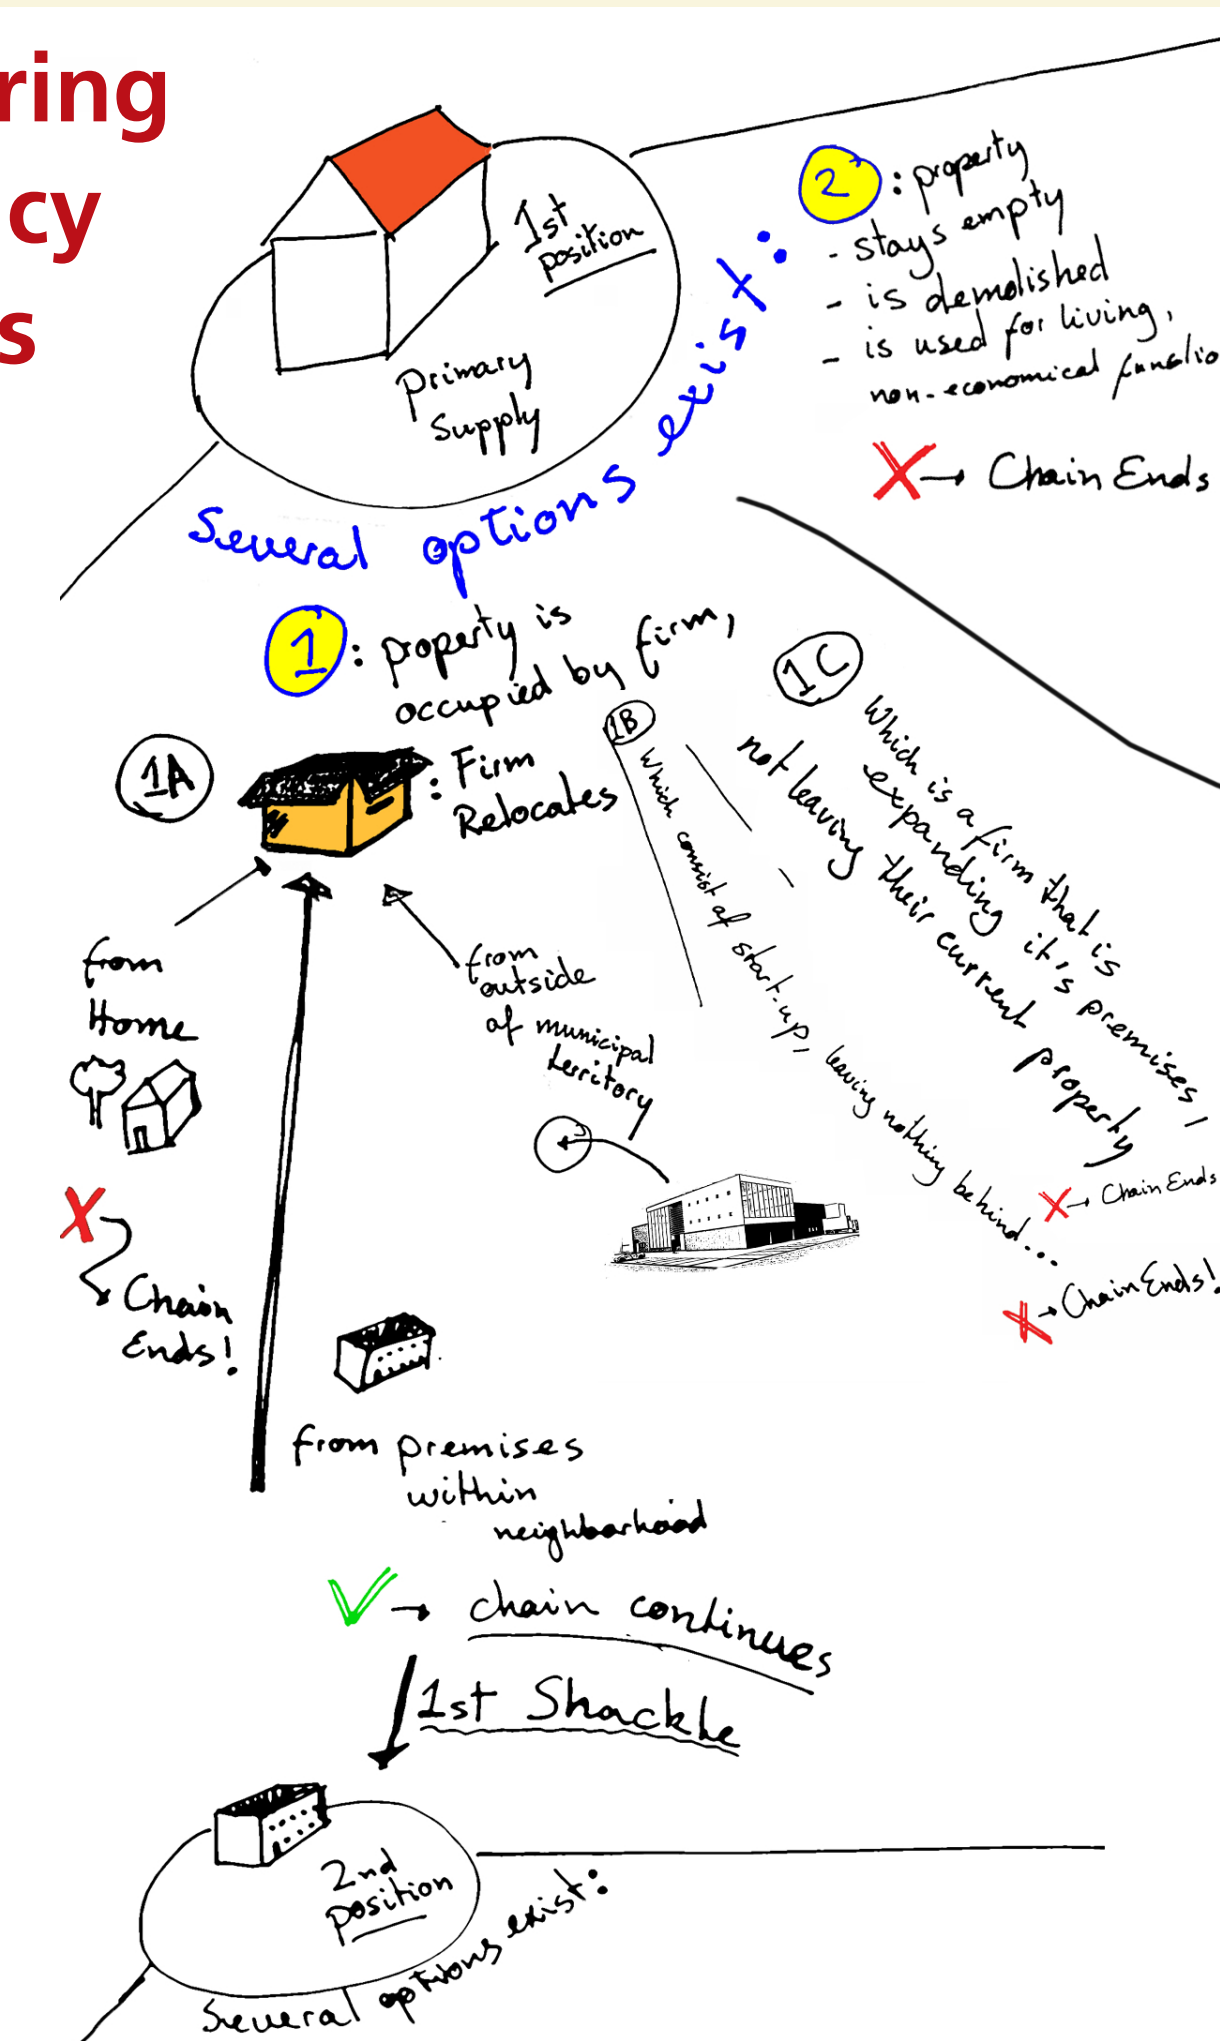 ring
cy
s
1st
position
Primary
Supply
Several options exist:
2 : property
- stays empty
- is demolished
- is used for living,
non-economical functio
X → Chain Ends
1 : property is
occupied by firm,
1A : Firm
Relocates
from
Home
X
Chain
Ends!
from
outside
of municipal
territory
from premises
within
neighborhood
V → chain continues
1st Shackle
1B
Which consist of start-up, leaving nothing behind...
X → Chain Ends!
1C
Which is a firm that is
expanding it's premises,
not leaving their current property
X → Chain Ends
2nd
position
Several options exist: